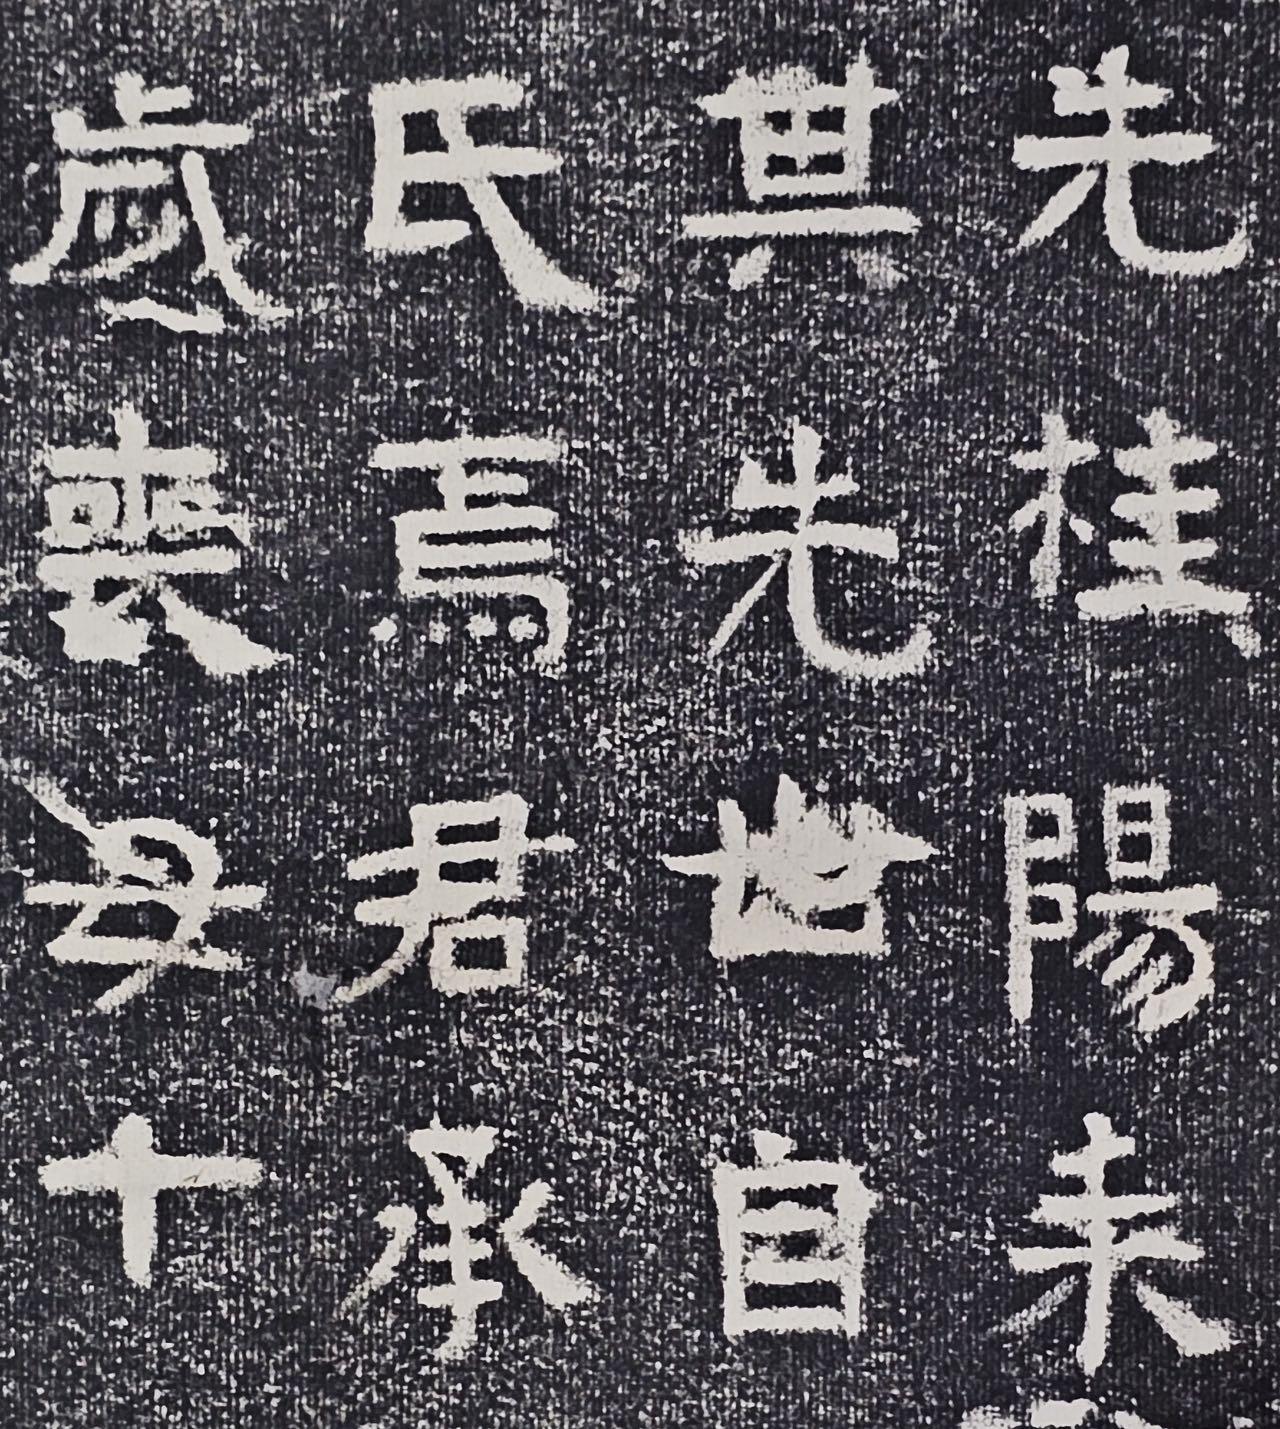 先桂陽耒
其先世自
氏焉君承
歲喪母十